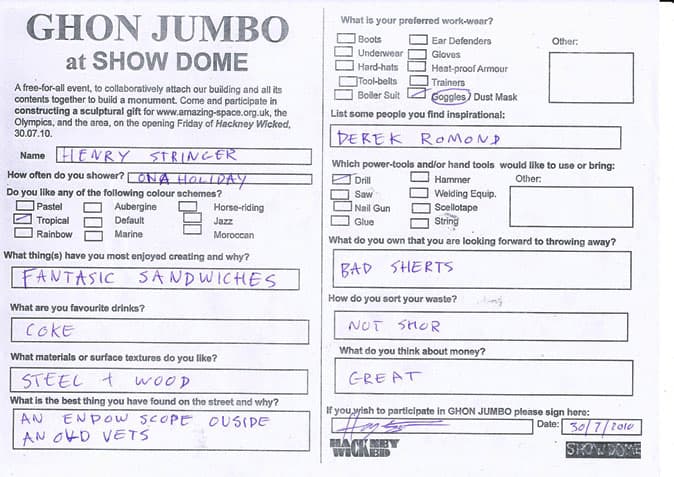 GHON JUMBO
at SHOW DOME
A free-for-all event, to collaboratively attach our building and all its
contents together to build a monument. Come and participate in
constructing a sculptural gift for www.amazing-space.org.uk, the
Olympics, and the area, on the opening Friday of Hackney Wicked,
30.07.10.
Name HENRY STRINGER
How often do you shower? ON A HOLIDAY
Do you like any of the following colour schemes?
Pastel Aubergine Horse-riding
Tropical Default Jazz
Rainbow Marine Moroccan
What thing(s) have you most enjoyed creating and why?
FANTASIC SANDWICHES
What are you favourite drinks?
COKE
What materials or surface textures do you like?
STEEL + WOOD
What is the best thing you have found on the street and why?
AN ENDOW SCOPE OUSIDE
AN OLD VETS
What is your preferred work-wear?
Boots Ear Defenders Other:
Underwear Gloves
Hard-hats Heat-proof Armour
Tool-belts Trainers
Boiler Suit Goggles/ Dust Mask
List some people you find inspirational:
DEREK ROMOND
Which power-tools and/or hand tools would like to use or bring:
Drill Hammer Other:
Saw Welding Equip.
Nail Gun Scellotape
Glue String
What do you own that you are looking forward to throwing away?
BAD SHERTS
How do you sort your waste?
NOT SHOR
What do you think about money?
GREAT
If you wish to participate in GHON JUMBO please sign here:
Date: 30/7/2010
HACKNEY
WICKED
SHOWDOME